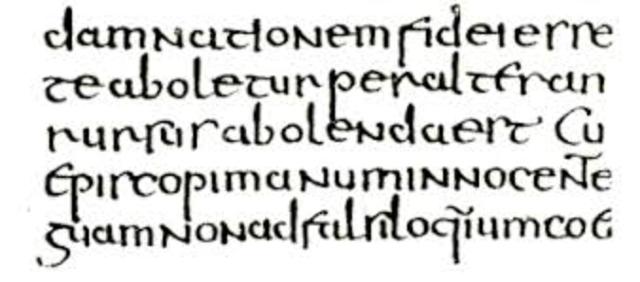 damnationem fidei esse
te aboletur per alteran
rursus abolenda est· Cu
Episcopi manum innocente
guam non ad falsiloq̄ium coe